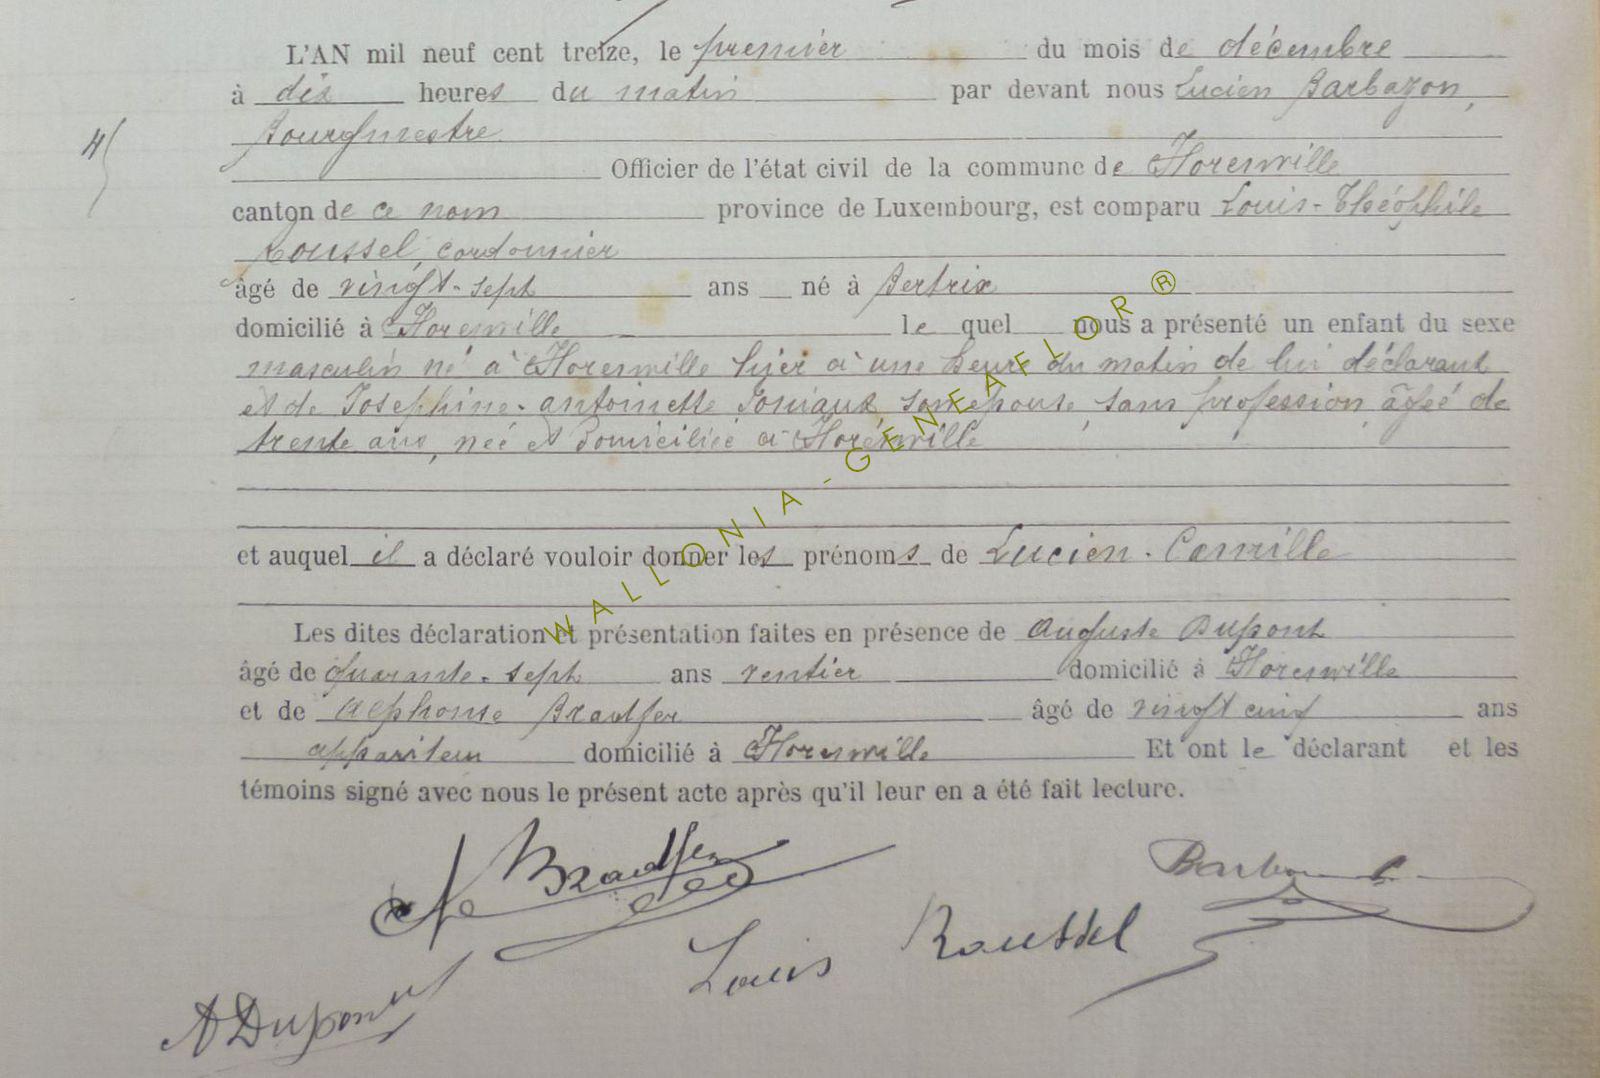 L'AN mil neuf cent treize, le premier du mois de décembre
à dix heures du matin par devant nous Lucien Barbazon,
Bourgmestre
4
Officier de l'état civil de la commune de Florenville
canton de ce nom province de Luxembourg, est comparu Louis-Théophile
Roussel, cordonnier
âgé de vingt-sept ans né à Bertrix
domicilié à Florenville le quel nous a présenté un enfant du sexe
masculin né à Florenville hier à une heure du matin de lui déclarant
et de Josephine-antoinette Soniaux son épouse, sans profession, âgée de
trente ans, née et domiciliée à Florenville
et auquel il a déclaré vouloir donner les prénoms de Lucien-Camille
Les dites déclaration et présentation faites en présence de Auguste Dupont
âgé de quarante-sept ans rentier domicilié à Florenville
et de Alphonse Bradfer âgé de vingt cinq ans
appariteur domicilié à Florenville Et ont le déclarant et les
témoins signé avec nous le présent acte après qu'il leur en a été fait lecture.
WALLONIA-GENEAFLOR®
Bradfer
Louis Roussel
A Dupont